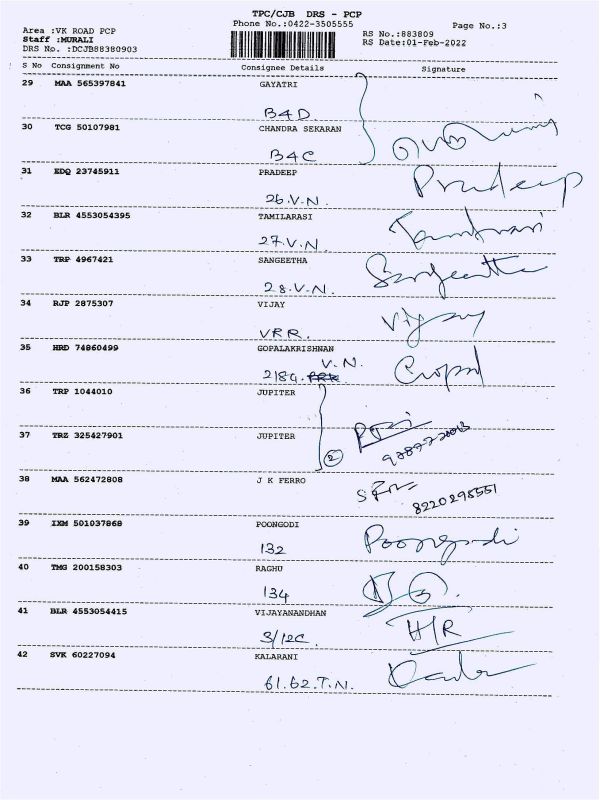 TPC/CJB DRS - PCP
Area :VK ROAD PCP
Phone No.:0422-3505555
Page No.:3
Staff :MURALI
RS No.:883809
DRS No. :DCJB88380903
RS Date:01-Feb-2022
S No Consignment No Consignee Details Signature
29 MAA 565397841 GAYATRI
B4D
30 TCG 50107981 CHANDRA SEKARAN
B4C
31 EDQ 23745911 PRADEEP
26.V.N. Pradeep
32 BLR 4553054395 TAMILARASI
27.V.N.
33 TRP 4967421 SANGEETHA
28.V.N. Sangeetha
34 RJP 2875307 VIJAY
VRR. Vijay
35 HRD 74860499 GOPALAKRISHNAN
V.N.
218G. Gopal
36 TRP 1044010 JUPITER
37 TRZ 325427901 JUPITER
2
38 MAA 562472808 J K FERRO
8220295551
39 IXM 501037868 POONGODI
132 Poongodi
40 TMG 200158303 RAGHU
134
41 BLR 4553054415 VIJAYANANDHAN
3/12C. H/R
42 SVK 60227094 KALARANI
61.62.T.N.